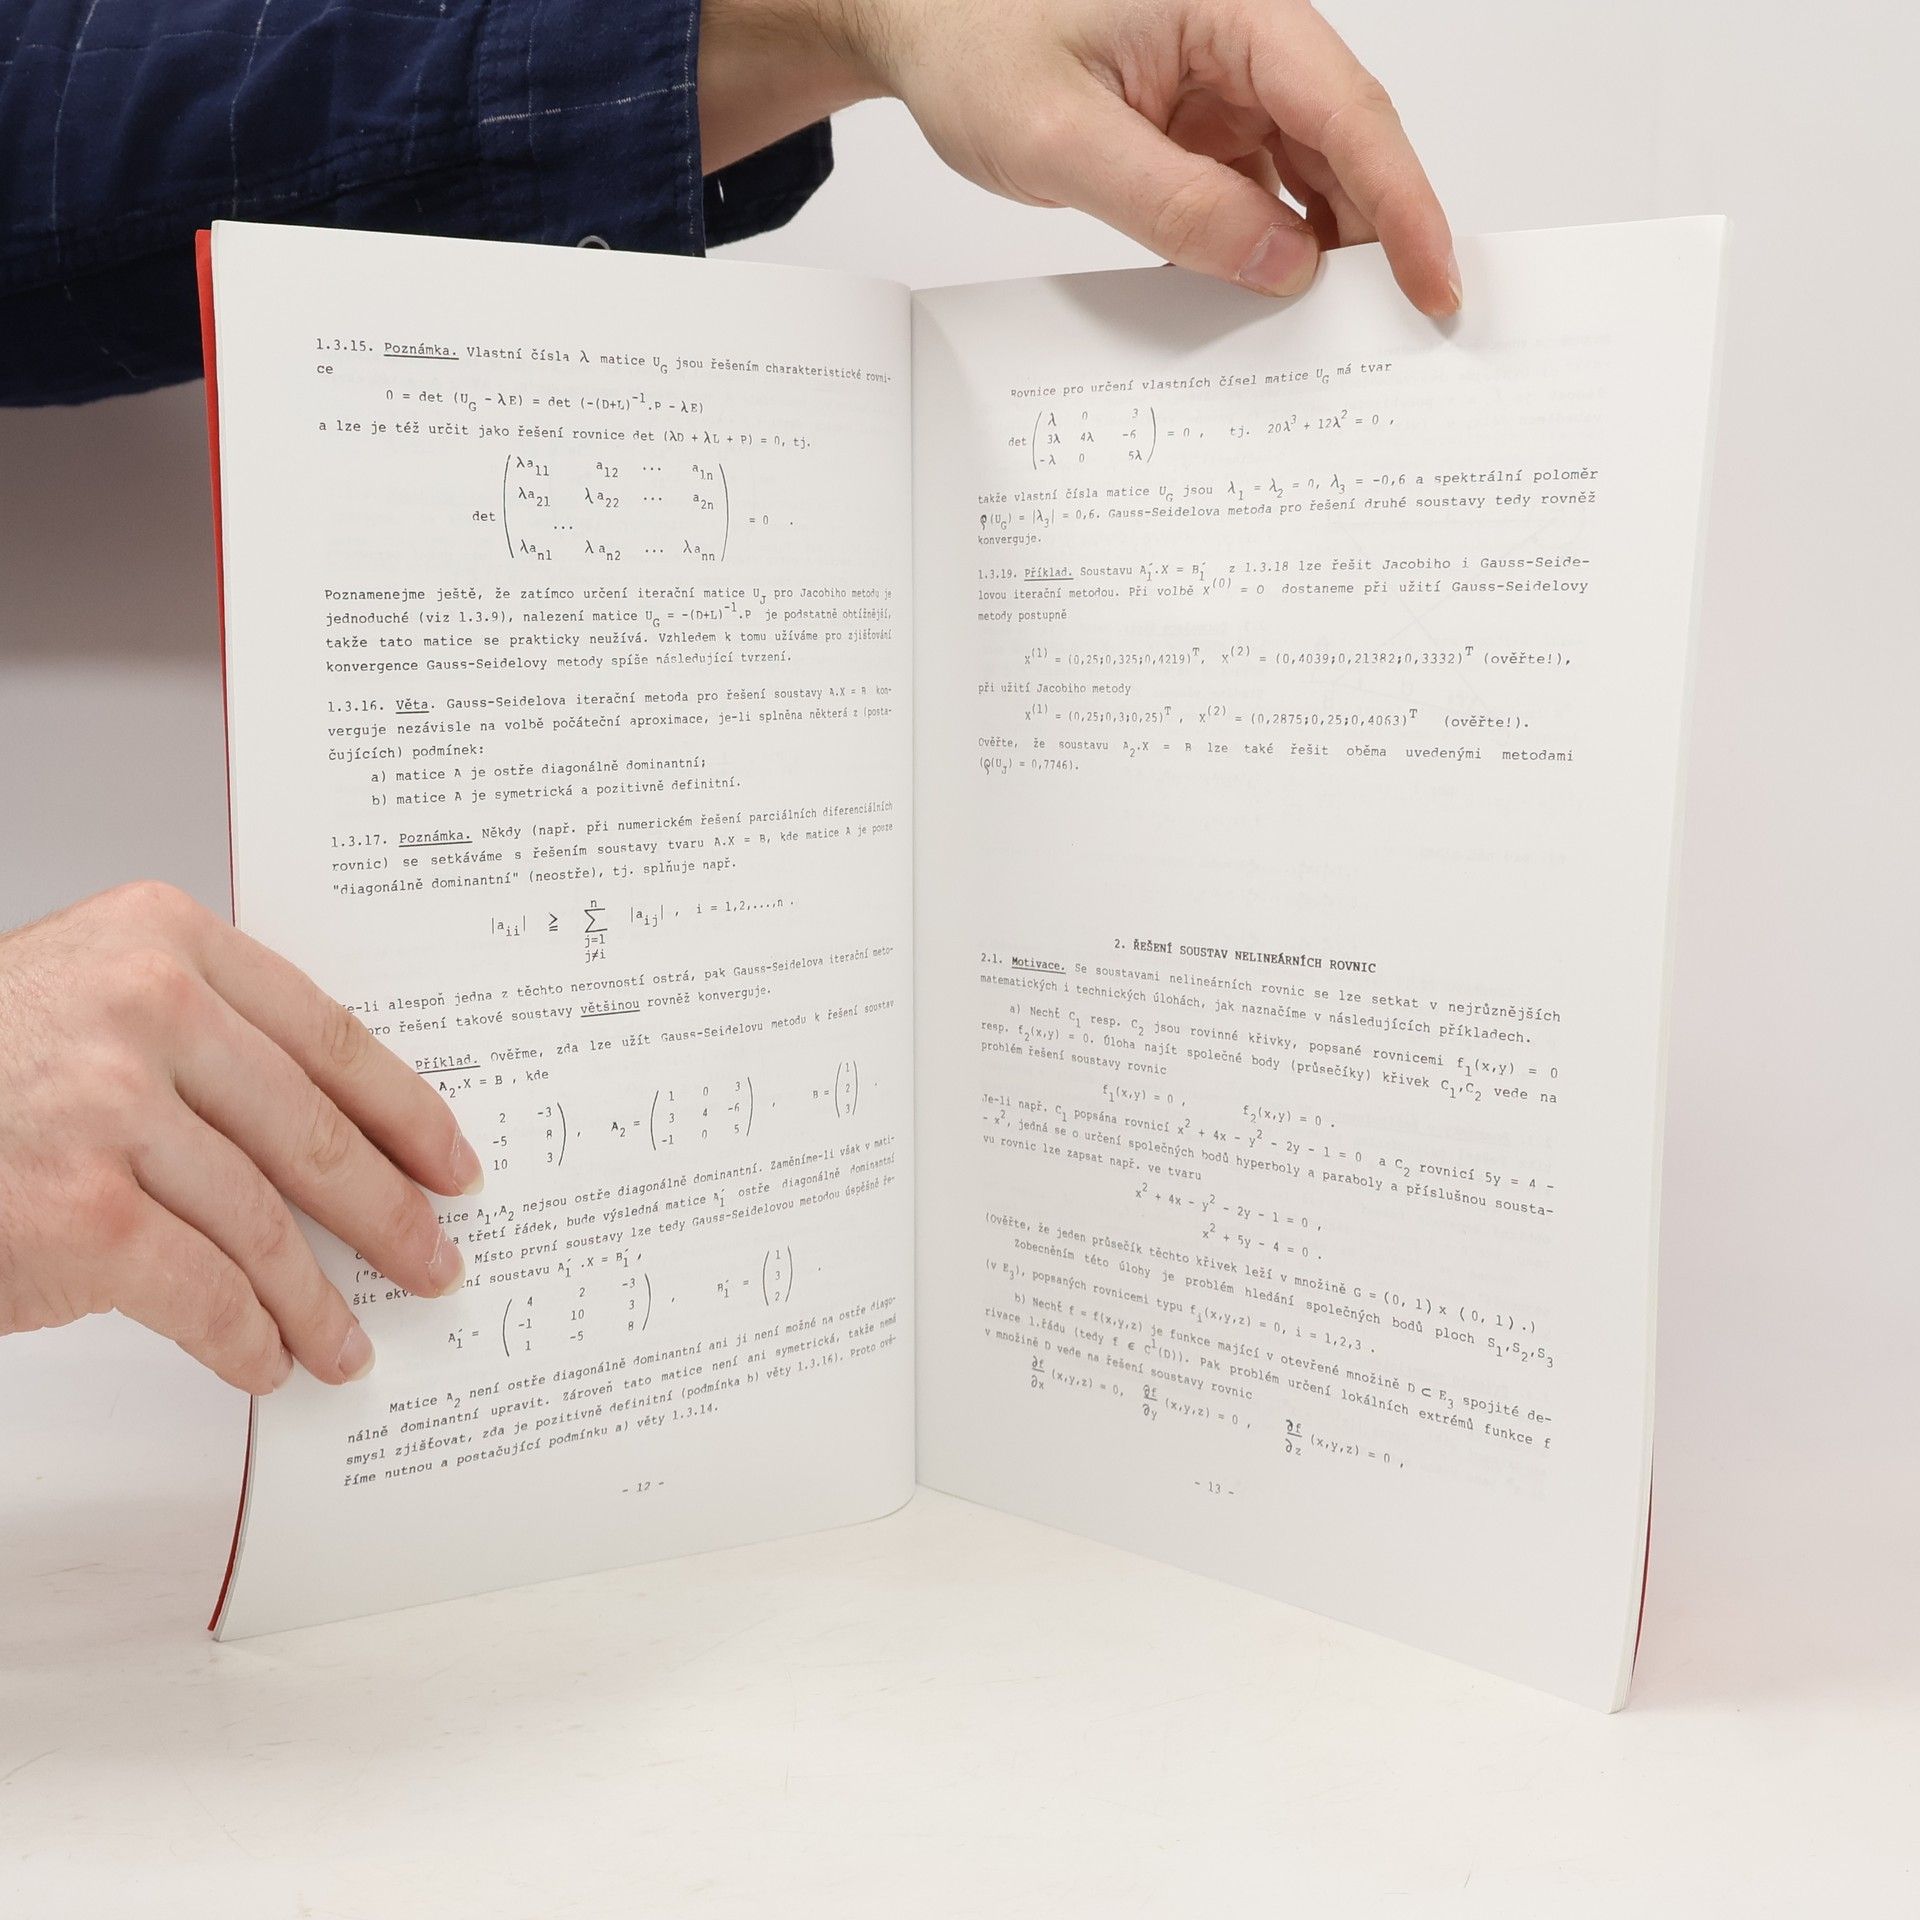 1.3.15. Poznámka. Vlastní čísla λ matice U_G jsou řešením charakteristické rovni-
ce
0 = det (U_G - λE) = det (-(D+L)^-1.P - λE)
a lze je též určit jako řešení rovnice det (λD + λL + P) = 0, tj.
λa_11 a_12 ... a_1n
λa_21 λa_22 ... a_2n
det ... = 0 .
λa_n1 λa_n2 ... λa_nn
Poznamenejme ještě, že zatímco určení iterační matice U_J pro Jacobiho metodu je
jednoduché (viz 1.3.9), nalezení matice U_G = -(D+L)^-1.P je podstatně obtížnější,
takže tato matice se prakticky neužívá. Vzhledem k tomu užíváme pro zjišťování
konvergence Gauss-Seidelovy metody spíše následující tvrzení.
1.3.16. Věta. Gauss-Seidelova iterační metoda pro řešení soustavy A.X = B kon-
verguje nezávisle na volbě počáteční aproximace, je-li splněna některá z (posta-
čujících) podmínek:
a) matice A je ostře diagonálně dominantní;
b) matice A je symetrická a pozitivně definitní.
1.3.17. Poznámka. Někdy (např. při numerickém řešení parciálních diferenciálních
rovnic) se setkáváme s řešením soustavy tvaru A.X = B, kde matice A je pouze
"diagonálně dominantní" (neostře), tj. splňuje např.
|a_ii| ≧ ∑ |a_ij| , i = 1,2,...,n .
n
j=1
j≠i
-li alespoň jedna z těchto nerovností ostrá, pak Gauss-Seidelova iterační meto-
pro řešení takové soustavy většinou rovněž konverguje.
Příklad. Ověřme, zda lze užít Gauss-Seidelovu metodu k řešení soustav
A_2.X = B , kde
2 -3 1 0 3 1
-5 8 , A_2 = 3 4 -6 , B = 2 .
10 3 -1 0 5 3
A_1,A_2 nejsou ostře diagonálně dominantní. Zaměníme-li však v mati-
a třetí řádek, bude výsledná matice A_1´ ostře diagonálně dominantní
Místo první soustavy lze tedy Gauss-Seidelovou metodou úspěšně ře-
šit soustavu A_1´.X = B_1´ ,
4 2 -3 1
A_1´ = -1 10 3 , B_1´ = 3 .
1 -5 8 2
Matice A_2 není ostře diagonálně dominantní ani ji není možné na ostře diago-
nálně dominantní upravit. Zároveň tato matice není ani symetrická, takže nemá
smysl zjišťovat, zda je pozitivně definitní (podmínka b) věty 1.3.16). Proto ově-
říme nutnou a postačující podmínku a) věty 1.3.14.
- 12 -
Rovnice pro určení vlastních čísel matice U_G má tvar
λ 0 3
det 3λ 4λ -6 = 0 , tj. 20λ^3 + 12λ^2 = 0 ,
-λ 0 5λ
takže vlastní čísla matice U_G jsou λ_1 = λ_2 = 0, λ_3 = -0,6 a spektrální poloměr
ϱ(U_G) = |λ_3| = 0,6. Gauss-Seidelova metoda pro řešení druhé soustavy tedy rovněž
konverguje.
1.3.19. Příklad. Soustavu A_1´.X = B_1´ z 1.3.18 lze řešit Jacobiho i Gauss-Seide-
lovou iterační metodou. Při volbě X^(0) = 0 dostaneme při užití Gauss-Seidelovy
metody postupně
X^(1) = (0,25;0,325;0,4219)^T, X^(2) = (0,4039;0,21382;0,3332)^T (ověřte!),
při užití Jacobiho metody
X^(1) = (0,25;0,3;0,25)^T , X^(2) = (0,2875;0,25;0,4063)^T (ověřte!).
Ověřte, že soustavu A_2.X = B lze také řešit oběma uvedenými metodami
(ϱ(U_J) = 0,7746).
2. ŘEŠENÍ SOUSTAV NELINEÁRNÍCH ROVNIC
2.1. Motivace. Se soustavami nelineárních rovnic se lze setkat v nejrůznějších
matematických i technických úlohách, jak naznačíme v následujících příkladech.
a) Nechť C_1 resp. C_2 jsou rovinné křivky, popsané rovnicemi f_1(x,y) = 0
resp. f_2(x,y) = 0. Úloha najít společné body (průsečíky) křivek C_1,C_2 vede na
problém řešení soustavy rovnic
f_1(x,y) = 0 , f_2(x,y) = 0 .
Je-li např. C_1 popsána rovnicí x^2 + 4x - y^2 - 2y - 1 = 0 a C_2 rovnicí 5y = 4 -
- x^2, jedná se o určení společných bodů hyperboly a paraboly a příslušnou sousta-
vu rovnic lze zapsat např. ve tvaru
x^2 + 4x - y^2 - 2y - 1 = 0 ,
x^2 + 5y - 4 = 0 .
(Ověřte, že jeden průsečík těchto křivek leží v množině G = (0, 1) x (0, 1).)
Zobecněním této úlohy je problém hledání společných bodů ploch S_1,S_2,S_3
(v E_3), popsaných rovnicemi typu f_i(x,y,z) = 0, i = 1,2,3 .
b) Nechť f = f(x,y,z) je funkce mající v otevřené množině D ⊂ E_3 spojité de-
rivace 1.řádu (tedy f ∈ C^1(D)). Pak problém určení lokálních extrémů funkce f
v množině D vede na řešení soustavy rovnic
∂f/∂x (x,y,z) = 0, ∂f/∂y (x,y,z) = 0 , ∂f/∂z (x,y,z) = 0 ,
- 13 -